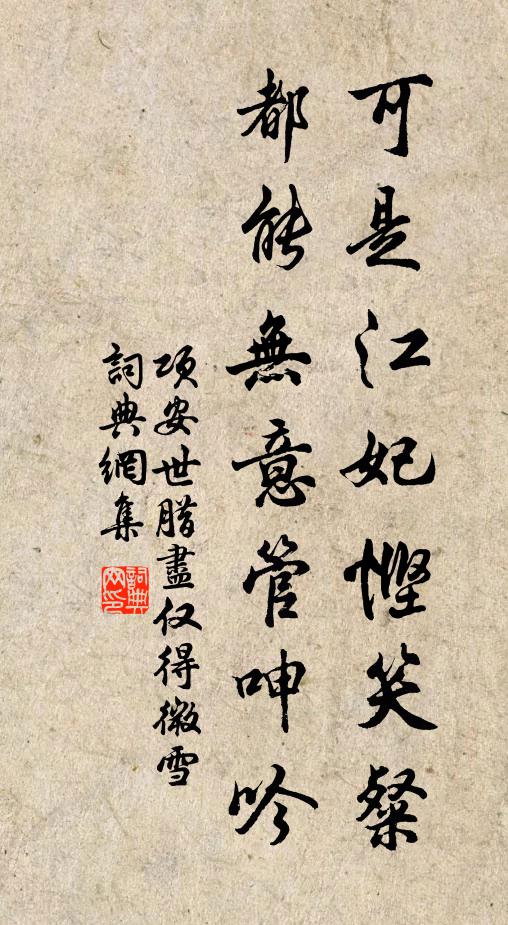 可是江妃慳笑粲
都能無意管呻吟
項安世腊盡仅得微雪
詞典網集
詞典网印